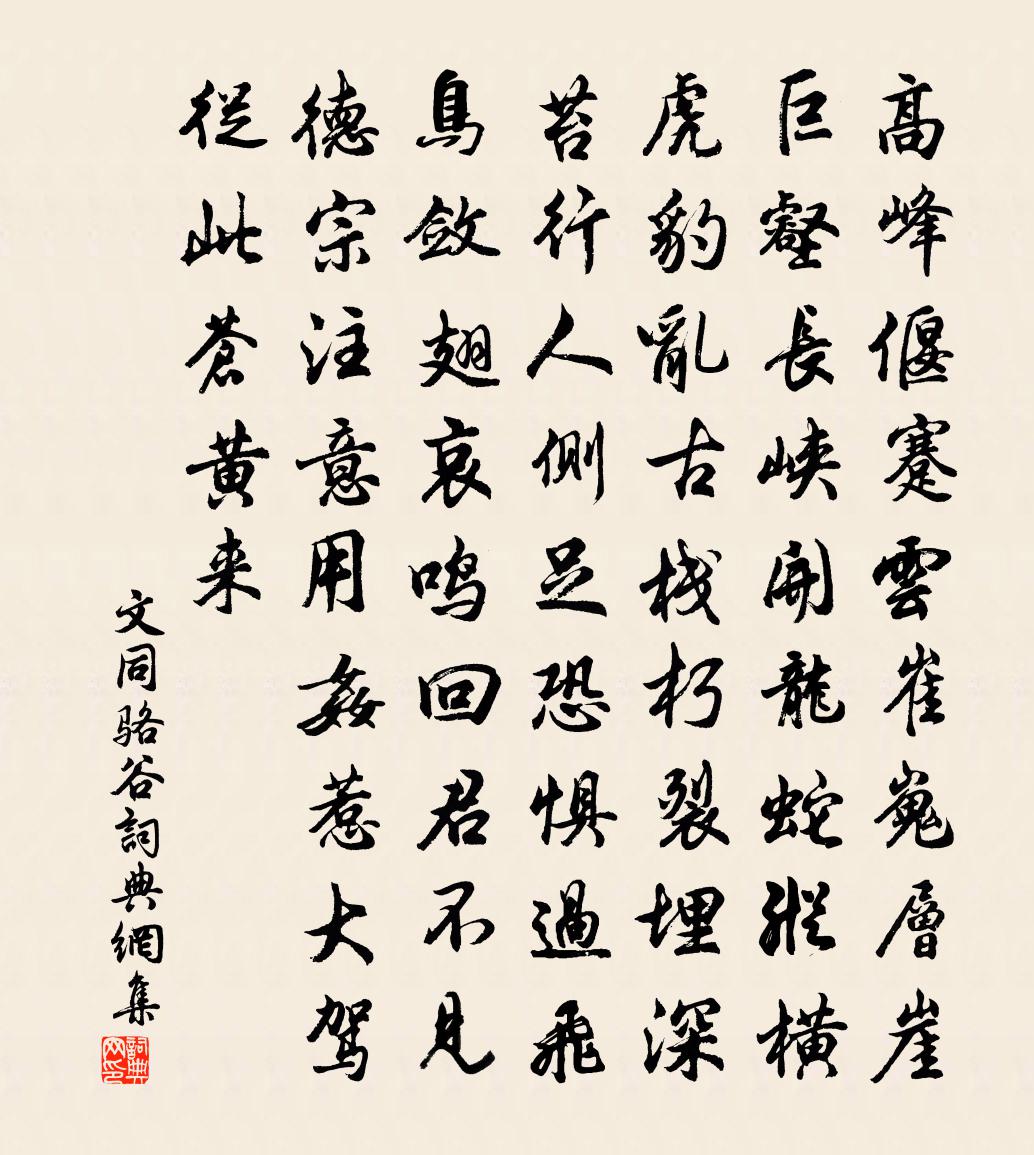 高峰偃蹇雲崔嵬層崖
巨壑長峽開龍蛇縱橫
虎豹亂古棧朽裂埋深
苔行人側足恐懼過飛
鳥斂翅哀鳴回君不見
德宗注意用姦惹大駕
從此蒼黄来
文同骆谷詞典網集
詞典网印